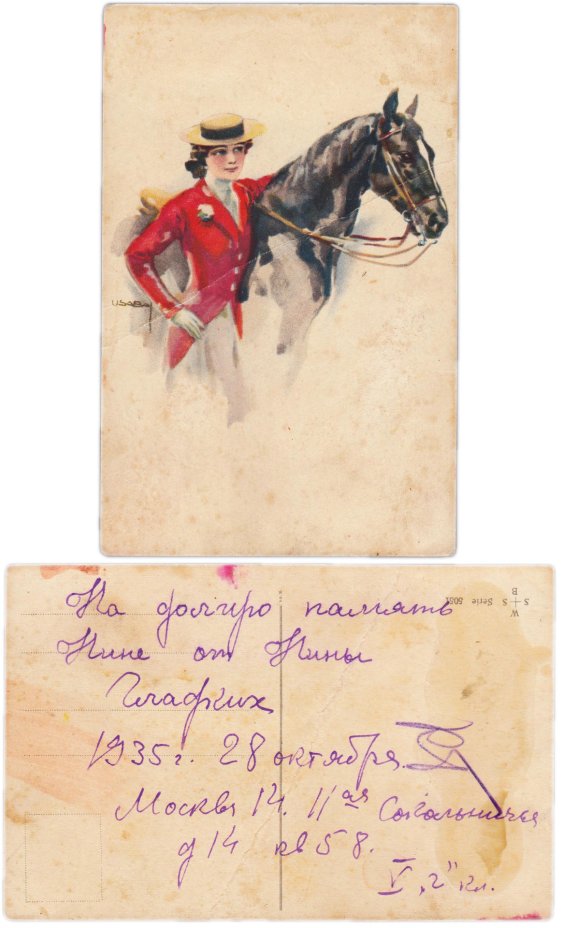 USABAL
На долгую память
Нине от Нины
Гладких
1935 г. 28 октября.
Москва 14. 11ая Сокольничья
д 14 кв 58.
V „2" кл.
W
S + S Serie 505
B